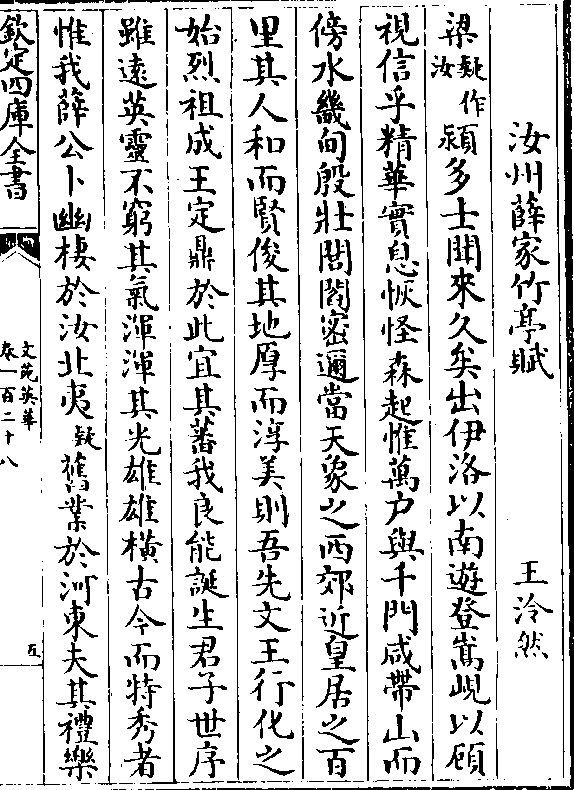 汝州薛家竹亭賦
王泠然
梁疑作汝潁多士聞來久矣出伊洛以南遊登嵩峴以頋
視信乎精華實息恢怪森起惟萬户與千門咸帶山而
傍水幾甸殷壯閭閻宻邇當天象之西郊近皇居之百
里其人和而賢俊其地厚而淳美則吾先文王行化之
始烈祖成王定鼎於此宜其蕃我良能誕生君子世序
雖遠英靈不窮其氣渾渾其光雄雄横古今而特秀者
惟我薛公卜幽棲於汝北夷疑舊業於河東夫其禮樂
欽定四庫全書
文苑英華
卷一百二十八
五